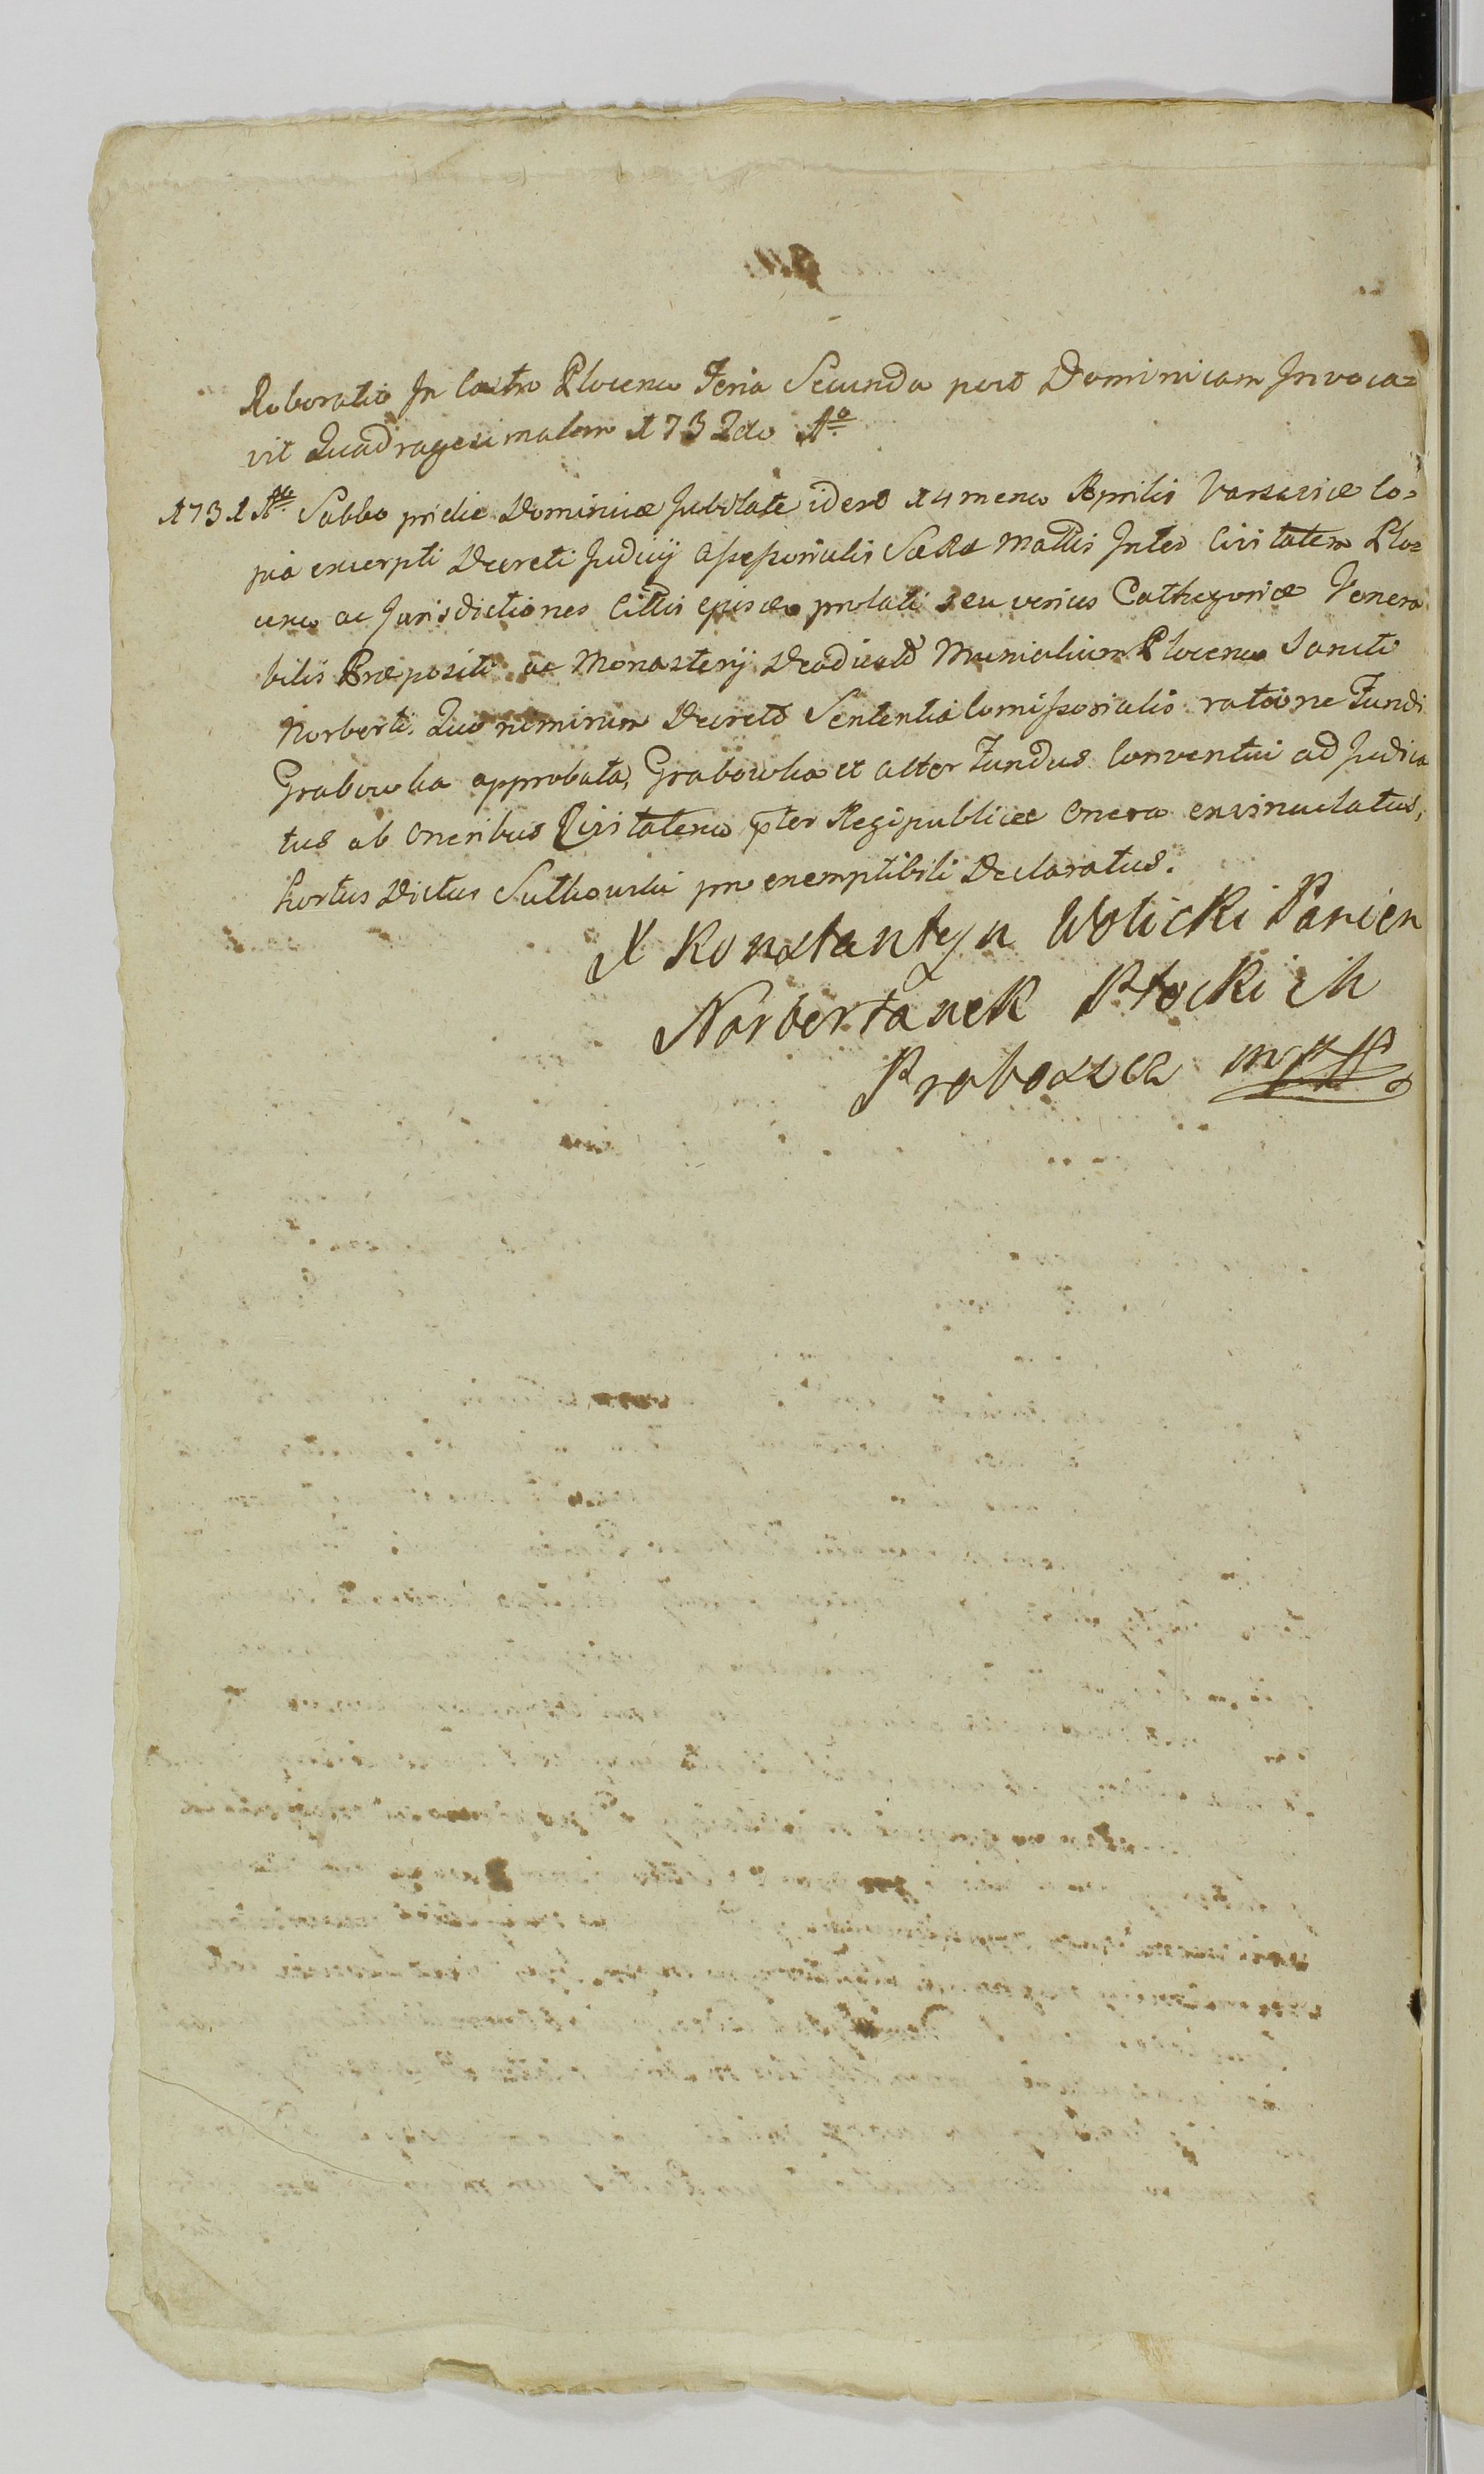 Roboratio In Castro Plocens Feria Secunda post Dominicam Invoca=
vit Quadragesimalem 1732do Ao
1731 Ao Sabbo pridie Dominicæ Jubilate idest 14 mens Aprilis Varsaviæ Co=
pia excerpti Decreti Judicij Assessorialis SæRæ Mattis Inter Civitatem Plo=
cens ac Jurisdictiones Cittis prolati seu verius Cathegoriæ Venera
bilis Præpositi ac Monasterij Monialium Plocens Sancti
Norberti. Quo nimirum Decreto Sententia Comissorialis ratione Fundi
Grabowka approbata, Grabowka et alter Fundus Conventui ad Judica
tus ab Oneribus Civitatens pter Regipublicæ Onera exvinculatus,
hortus Dictus Sutkowski pro exemptibili Declaratus.
X Konstantyn Wolicki Panien
Norbertanek Płockich
Proboszcz mpp